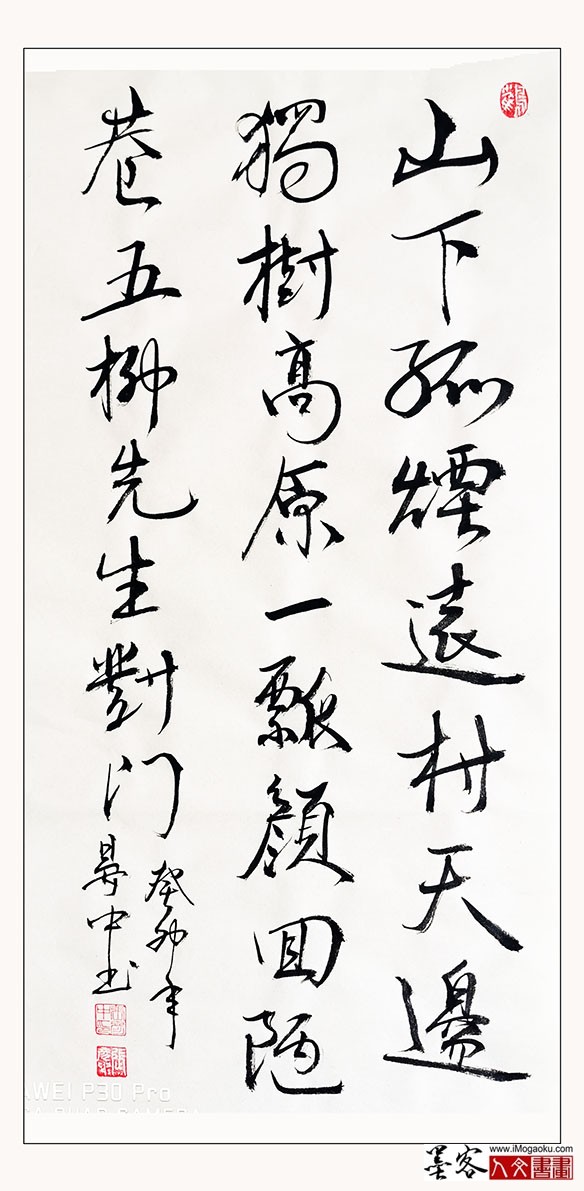 山下孤煙遠村天邊
獨樹高原一瓢顏回陋
巷五柳先生對门
癸卯年
中书
WEI P30 Pro
墨客
www.iMogaoku.com
人文書畫